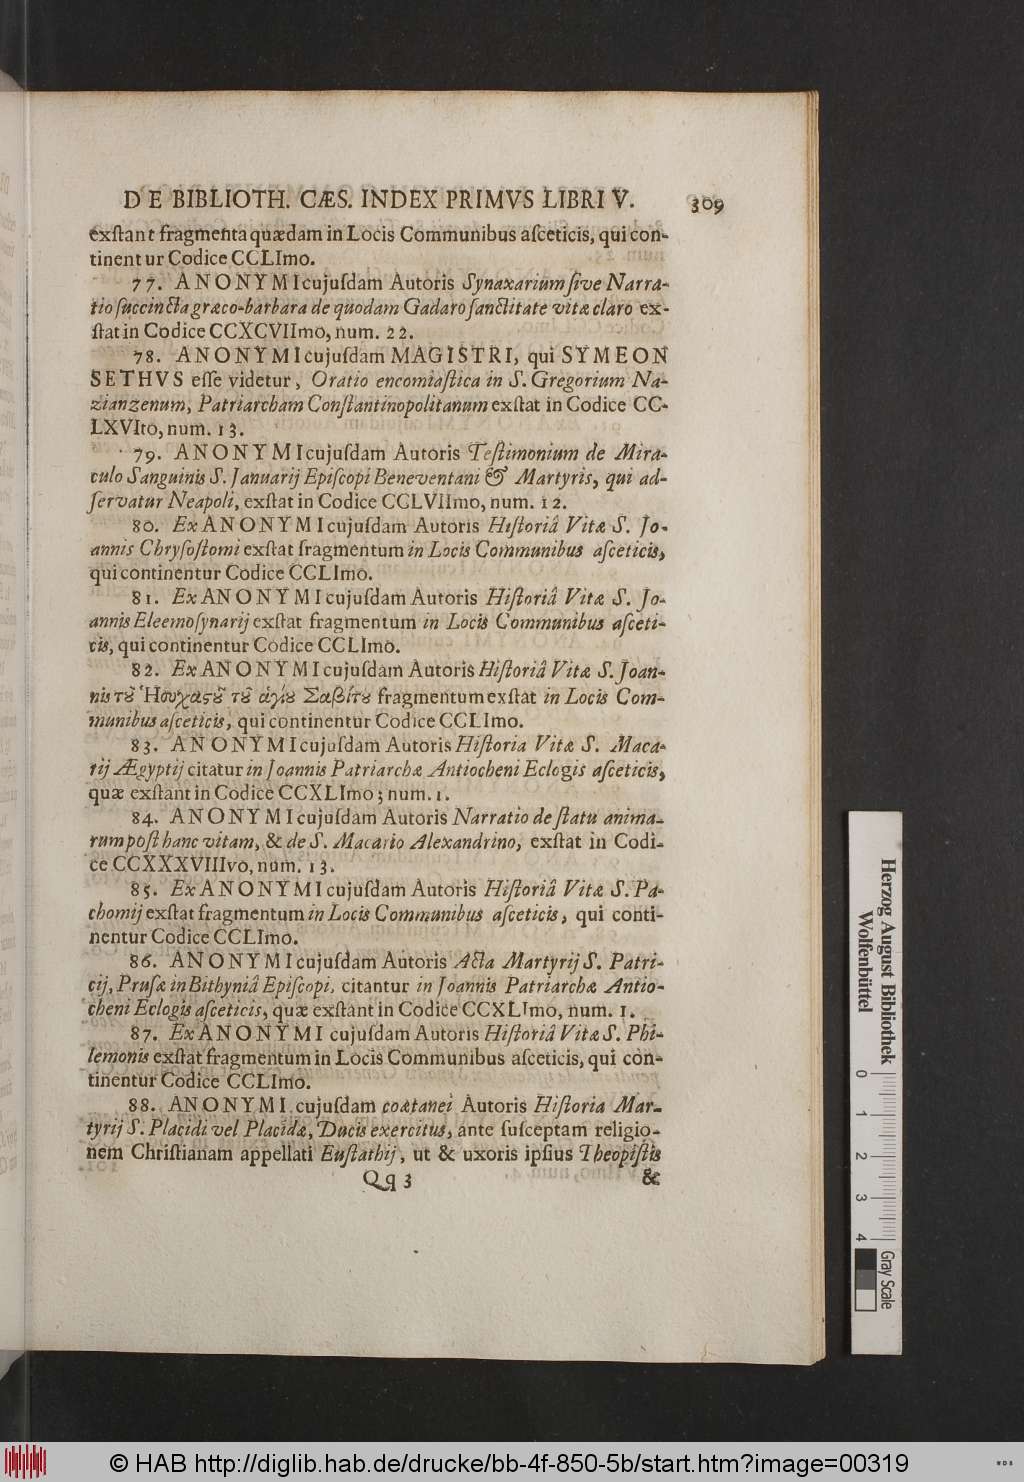 DE BIBLIOTH. CÆS. INDEX PRIMVS LIBRI V. 309
exſtant fragmenta quædam in Locis Communibus aſceticis, qui con-
tinentur Codice CCLImo.
77. ANONYMI cujuſdam Autoris Synaxarium ſive Narra-
tio ſuccincta græco-barbara de quodam Gadaro ſanctitate vitæ claro ex-
ſtat in Codice CCXCVIImo, num. 22.
78. ANONYMI cujuſdam MAGISTRI, qui SYMEON
SETHVS eſſe videtur, Oratio encomiaſtica in S. Gregorium Na-
zianzenum, Patriarcham Conſtantinopolitanum exſtat in Codice CC-
LXVIto, num. 13.
79. ANONYMI cujuſdam Autoris Teſtimonium de Mira-
culo Sanguinis S. Januarij Epiſcopi Beneventani & Martyris, qui ad-
ſervatur Neapoli, exſtat in Codice CCLVIImo, num. 12.
80. Ex ANONYMI cujuſdam Autoris Hiſtoriâ Vitæ S. Jo-
annis Chryſoſtomi exſtat fragmentum in Locis Communibus aſceticis,
qui continentur Codice CCLImo.
81. Ex ANONYMI cujuſdam Autoris Hiſtoriâ Vitæ S. Jo-
annis Eleemoſynarij exſtat fragmentum in Locis Communibus aſceti-
cis, qui continentur Codice CCLImo.
82. Ex ANONYMI cujuſdam Autoris Hiſtoriâ Vitæ S. Joan-
nis τȣ͂ Ἡσυχαϛȣ͂ τȣ͂ ἁγίȣ Σαβίτȣ fragmentum exſtat in Locis Com-
munibus aſceticis, qui continentur Codice CCLImo.
83. ANONYMI cujuſdam Autoris Hiſtoria Vitæ S. Maca-
rij Ægyptij citatur in Joannis Patriarchæ Antiocheni Eclogis aſceticis,
quæ exſtant in Codice CCXLImo; num. 1.
84. ANONYMI cujuſdam Autoris Narratio de ſtatu anima-
rum poſt hanc vitam, & de S. Macario Alexandrino, exſtat in Codi-
ce CCXXXVIIIvo, num. 13.
85. Ex ANONYMI cujuſdam Autoris Hiſtoriâ Vitæ S. Pa-
chomij exſtat fragmentum in Locis Communibus aſceticis, qui conti-
nentur Codice CCLImo.
86. ANONYMI cujuſdam Autoris Acta Martyrij S. Patri-
cij, Pruſæ in Bithyniâ Epiſcopi, citantur in Joannis Patriarchæ Antio-
cheni Eclogis aſceticis, quæ exſtant in Codice CCXLImo, num. 1.
87. Ex ANONYMI cujuſdam Autoris Hiſtoriâ Vitæ S. Phi-
lemonis exſtat fragmentum in Locis Communibus aſceticis, qui con-
tinentur Codice CCLImo.
88. ANONYMI cujuſdam coætanei Autoris Hiſtoria Mar-
tyrij S. Placidi vel Placidæ, Ducis exercitus, ante ſuſceptam religio-
nem Chriſtianam appellati Euſtathij, ut & uxoris ipſius Theopiſtis
Qq 3 &
Herzog August Bibliothek
Wolfenbüttel
0 1 2 3 4
Gray Scale
© HAB http://diglib.hab.de/drucke/bb-4f-850-5b/start.htm?image=00319